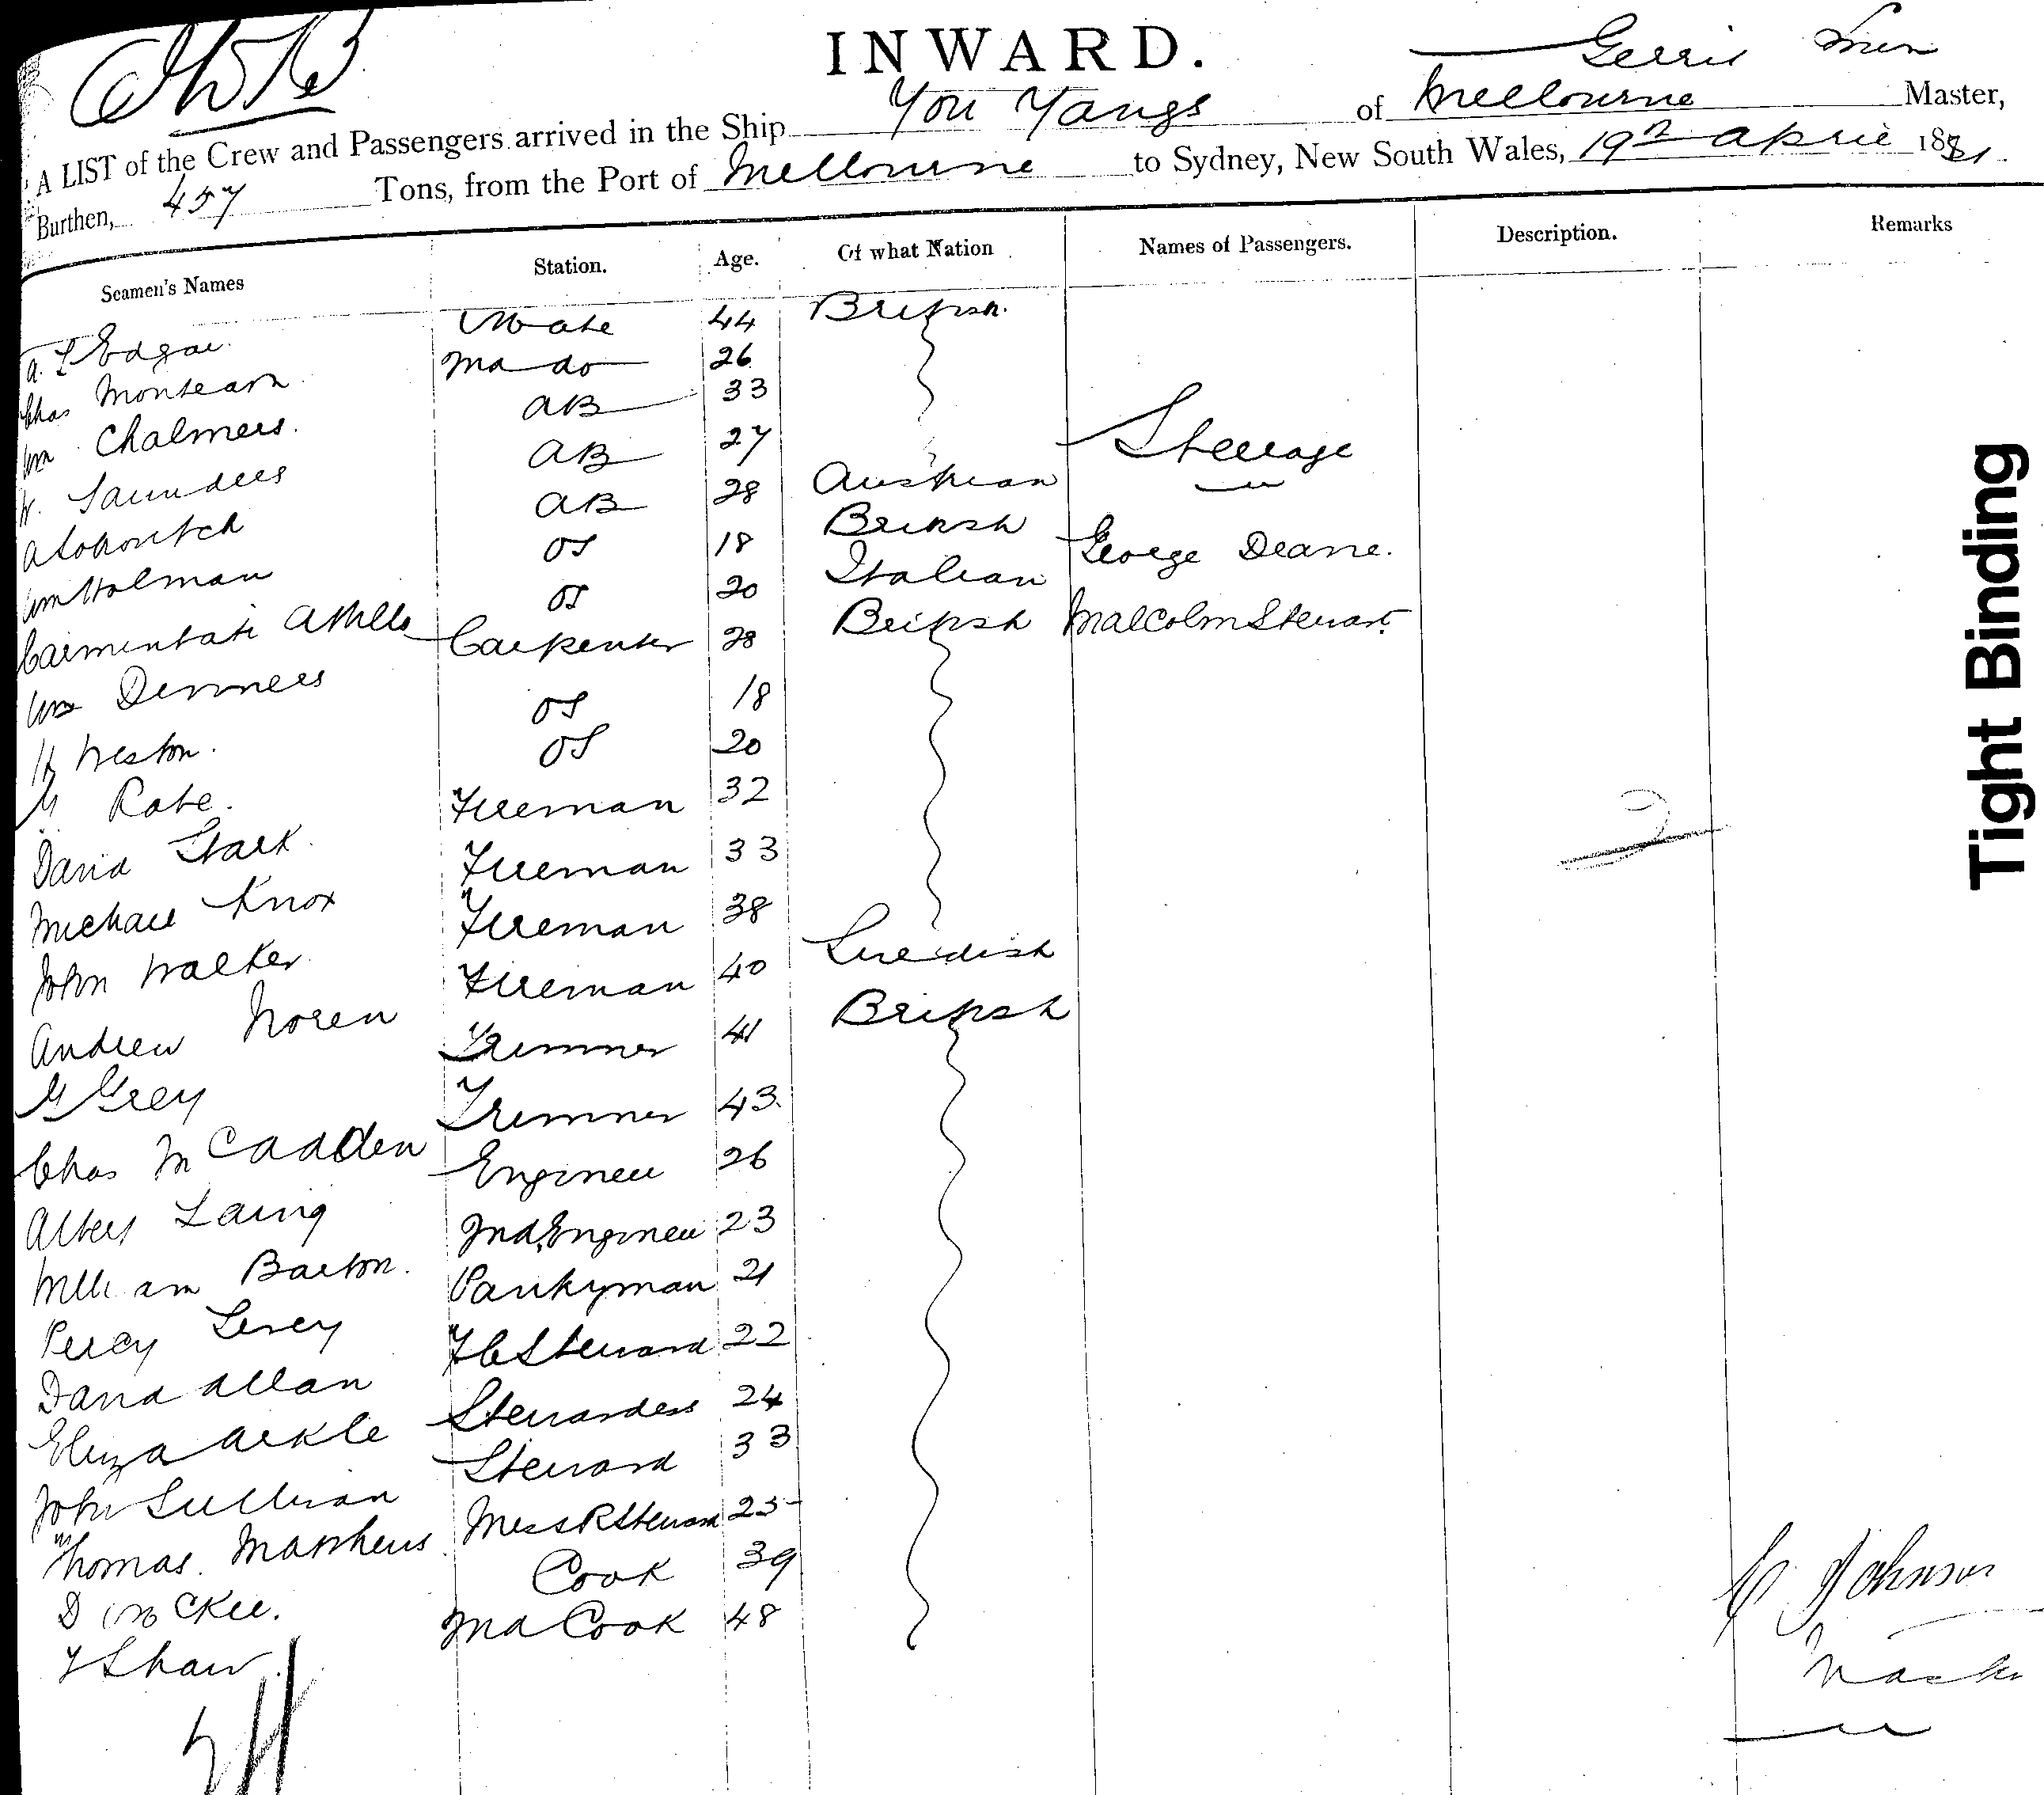 INWARD.
A LIST of the Crew and Passengers arrived in the Ship You Yangs of Melbourne Master,
Burthen, 457 Tons, from the Port of Melbourne to Sydney, New South Wales, 19th April 1881.
Seamen's Names Station. Age. Of what Nation Names of Passengers. Description. Remarks
A. L Edgar Mate 44 British
Chas Monteam 2nd do 26
Wm Chalmers AB 33
W. Saunders AB 27 Steerage
AB 28 Austrian
Wm Holman OS 18 British George Deane.
OS 20 Italian
Wm Carpenter 28 British Malcolm Stewart
H Weston OS 18
G Robe. OS 20
David Stark Fireman 32
Michael Knox Fireman 33
John Walker Fireman 38
Andrew Noren Fireman 40 Swedish
G Grey Trimmer 41 British
Chas McCadden Trimmer 43
Albert Laing Engineer 26
William Barton 2nd Engineer 23
Percy Levey Pantryman 21
David Allan FC Steward 22
Eliza Arkle Stewardess 24
John Sullivan Steward 33
Thomas Matthews Mess R Steward 25
D McKee. Cook 39
T Shaw 2nd Cook 48
C. Johnson
Master
Tight Binding